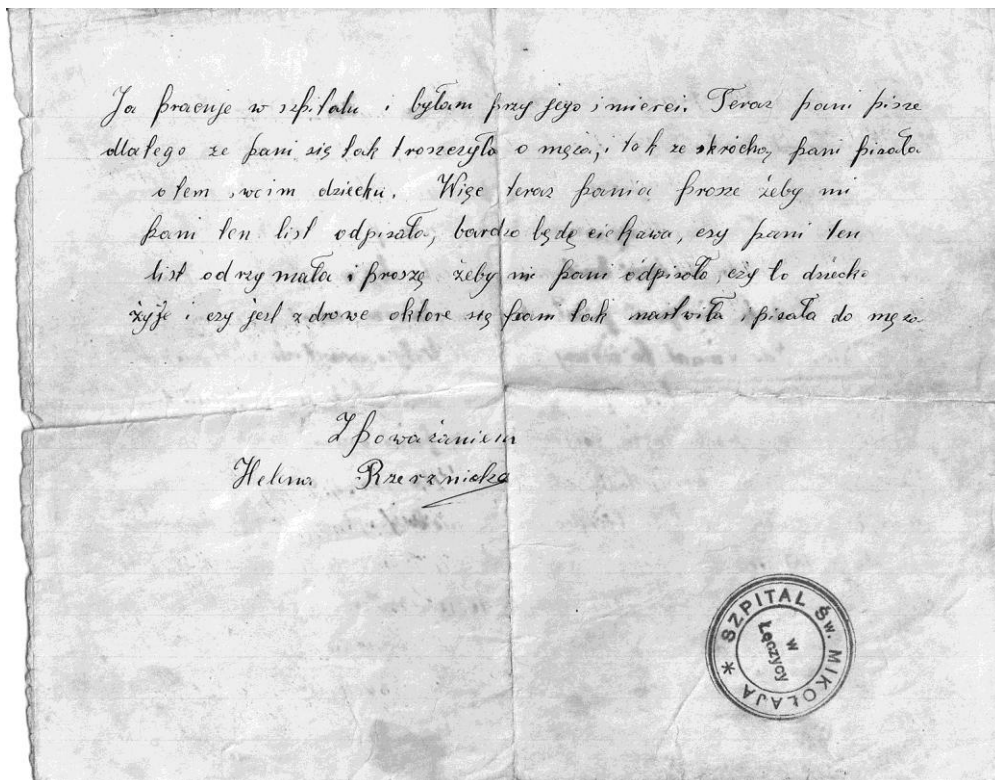 Ja pracuje w szpitalu i byłam przy jego śmierci. Teraz pani pisze
dlatego ze pani się tak troszczyła o męża, i tak ze skróchą pani pisała
o tem swoim dziecku. Więc teraz pania prosze żeby mi
pani ten list odpisała, bardzo będę ciekawa, czy pani ten
list odrzymała i proszę żeby mi pani odpisała, czy to dziecko
żyje i czy jest zdrowe oktore się pani tak martwiła i pisała do męża
Z poważaniem
Helena Rzerznicka
SZPITAL Św. MIKOŁAJA *
w
Łęczycy